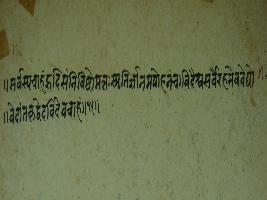 ॥सर्वस्यचाहंहृदिसंनिविष्टोमत्तःस्मृतिर्ज्ञानमपोहनंच।वेदैश्चसर्वैरहमेववेद्यो
॥वेदांतकृद्वेदविदेवचाहं॥१५॥